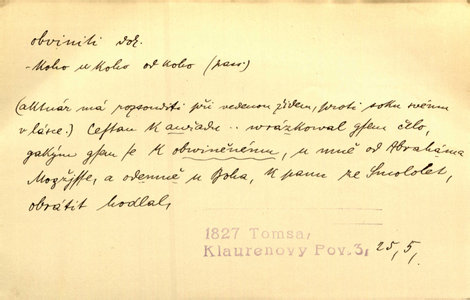 obviniti dok.
- koho u koho od koho (pass.)
(aktuár má rozsouditi při vedenou židem, proti soku svému
v lásce.) Cestau k auřadu .. wrázkowal gsem čelo,
gakým gsem se k obwiněnému, u mně od Abraháma
a odemně u Boha, k panu ze Smololet,
obrátit hodlal,
1827 Tomsa,
Klaurenovy Pov. 3, 25,5,